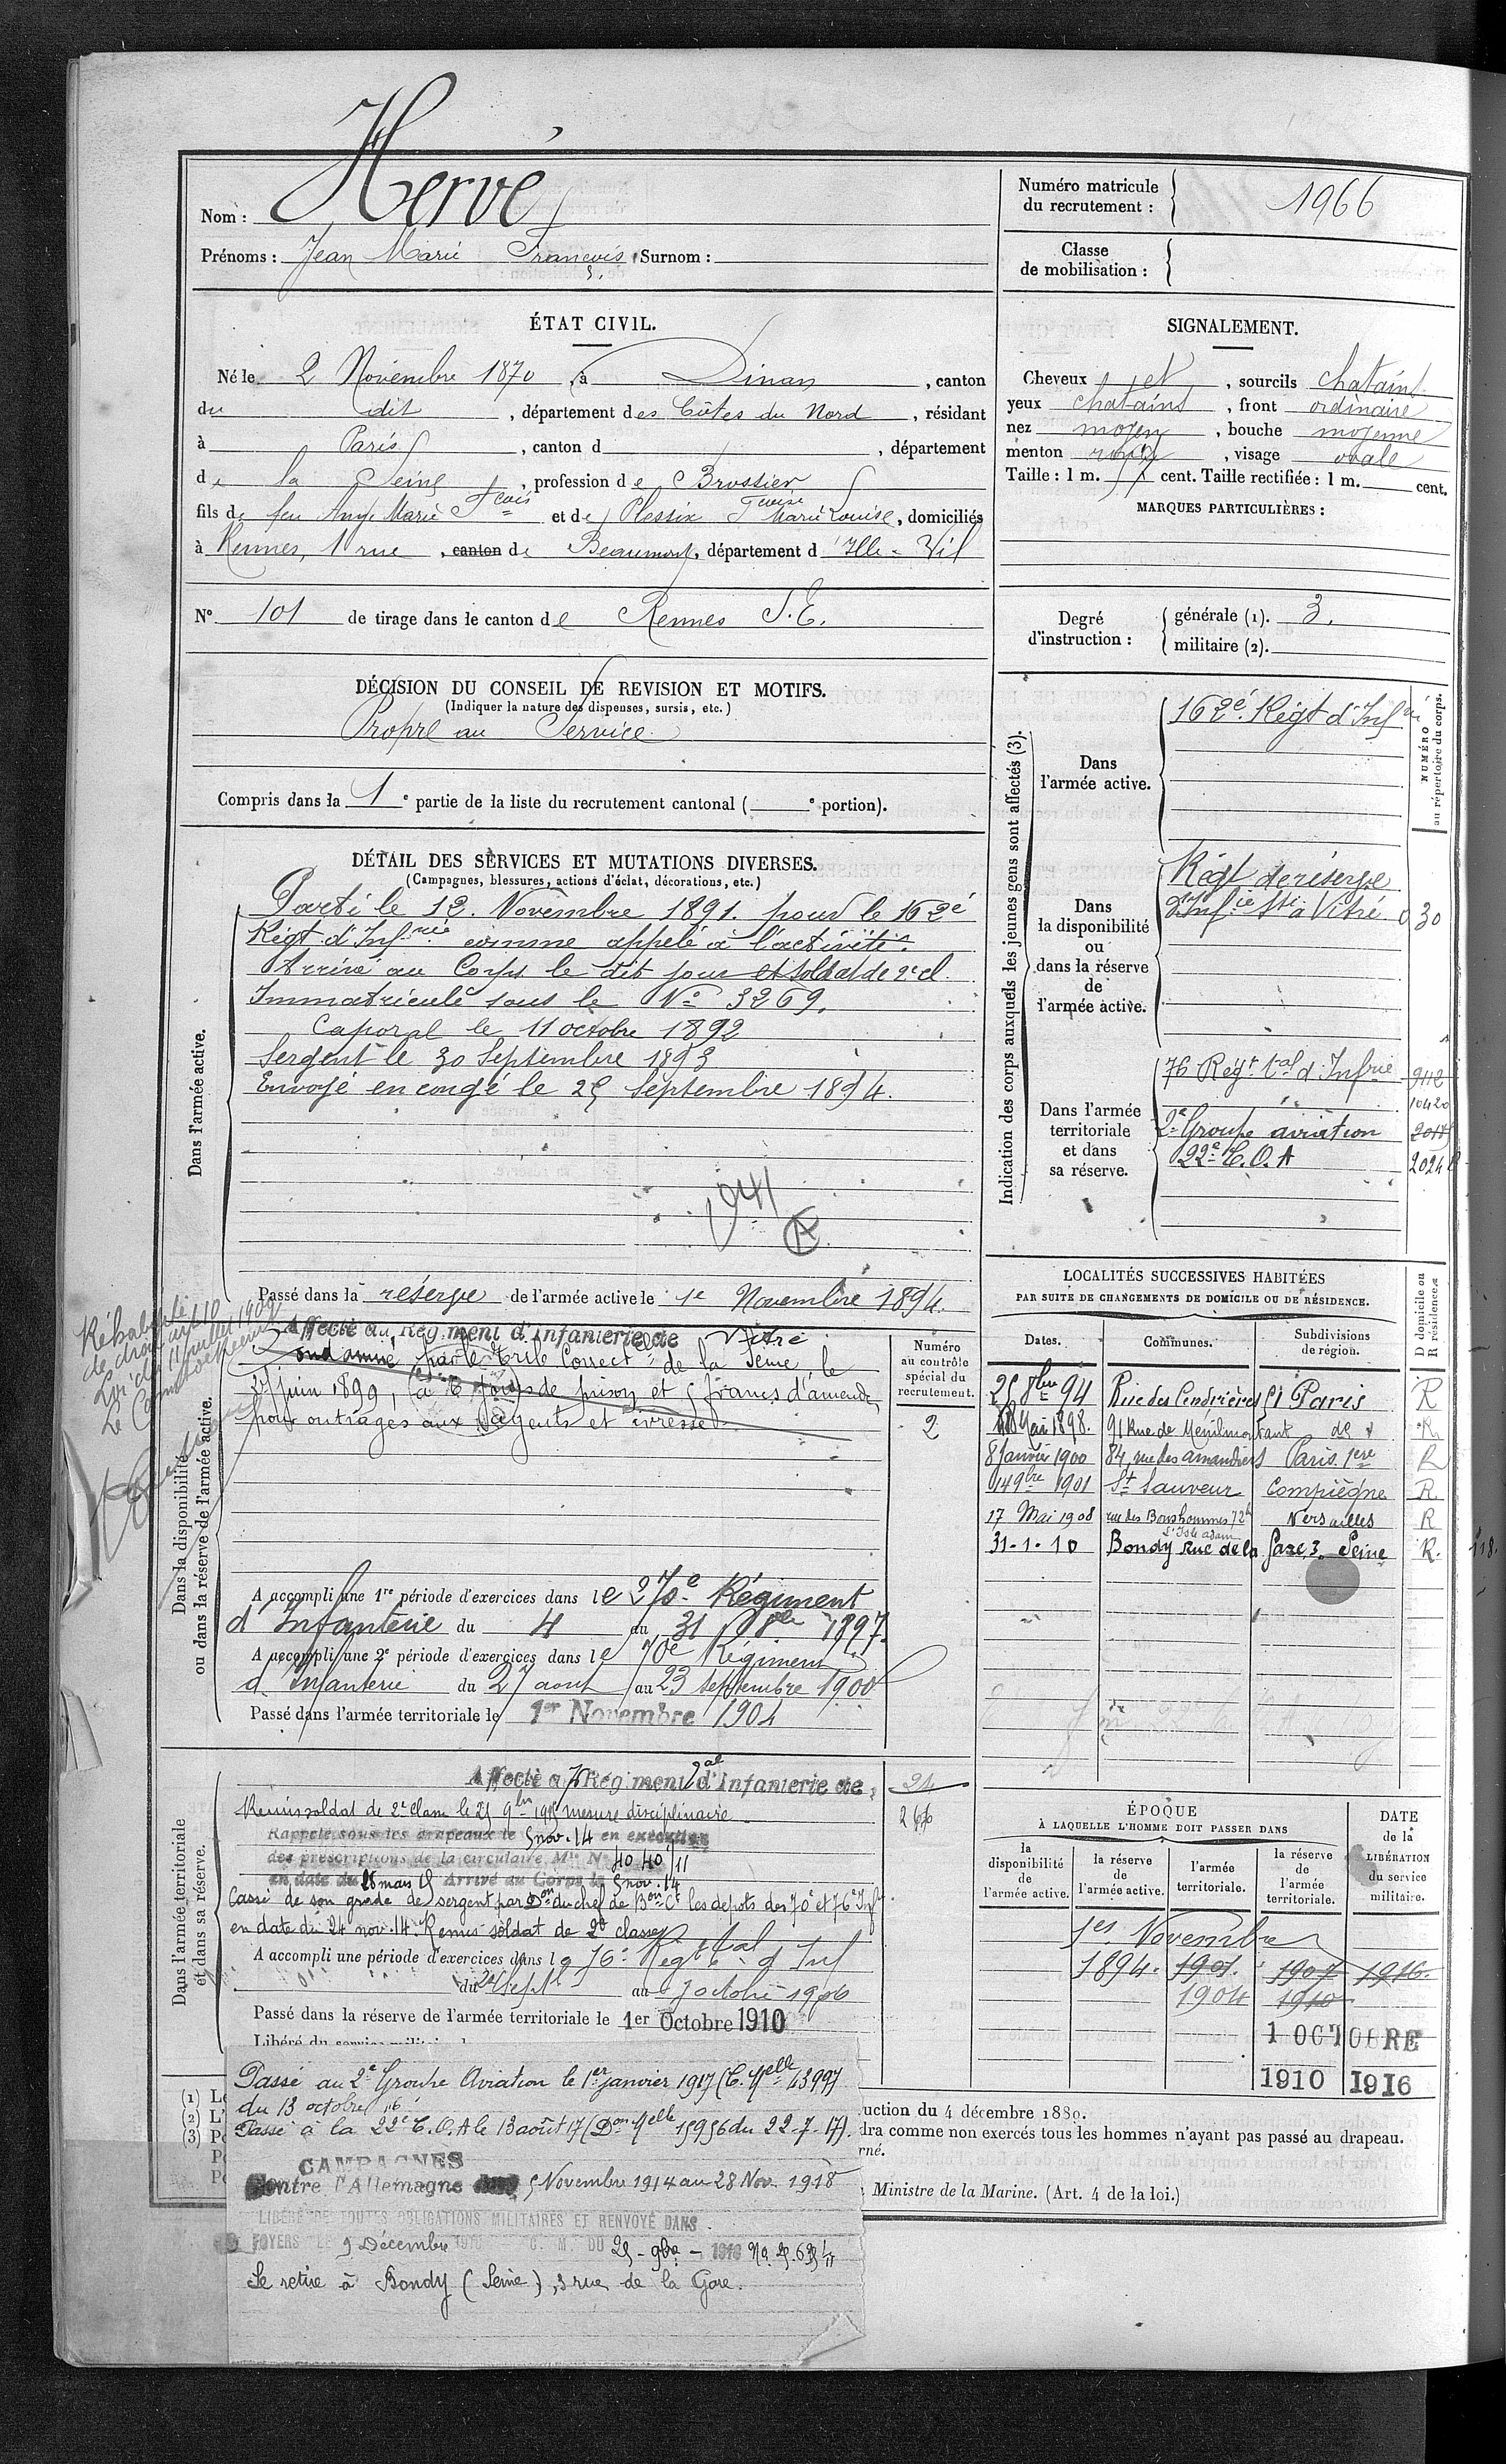 Nom : Hervé
Prénoms : Jean Marie François Surnom :
Numéro matricule du recrutement : 1966
Classe de mobilisation :
ÉTAT CIVIL.
Né le 2 Novembre 1870, à Dinan, canton
du dit, département des Côtes du Nord, résidant
à Paris, canton d , département
de la Seine, profession de Brossier
fils de feu Ange Marie Fçois et de Plessix Fçoise Marie Louise, domiciliés
à Rennes, 1 rue, canton de Beaumont, département d'Ille-Vil
N° 101 de tirage dans le canton de Rennes S.E.
SIGNALEMENT.
Cheveux et, sourcils chatains
yeux chatains, front ordinaire
nez moyen, bouche moyenne
menton rond, visage ovale
Taille : 1 m. cent. Taille rectifiée : 1 m. cent.
MARQUES PARTICULIÈRES :
Degré d'instruction : générale (1). 3.
militaire (2).
DÉCISION DU CONSEIL DE REVISION ET MOTIFS.
(Indiquer la nature des dispenses, sursis, etc.)
Propre au Service
Compris dans la 1e partie de la liste du recrutement cantonal ( e portion).
DÉTAIL DES SERVICES ET MUTATIONS DIVERSES.
(Campagnes, blessures, actions d'éclat, décorations, etc.)
Dans l'armée active.
Parti le 12 Novembre 1891. pour le 162e
Régt d'Infrie comme appelé à l'activité.
Arrivé au Corps le dit jour et soldat de 2e cl.
Immatriculé sous le N° 3269.
Caporal le 11 octobre 1892
Sergent le 30 Septembre 1893
Envoyé en congé le 25 Septembre 1894.
1941
A
Passé dans la réserve de l'armée active le 1e Novembre 1894.
Indication des corps auxquels les jeunes gens sont affectés (3).
NUMÉRO au répertoire du corps.
Dans l'armée active.
162e Régt d'Infrie
Dans la disponibilité ou dans la réserve de l'armée active.
Régt de réserve
d'Infie sté à Vitré 030
Dans l'armée territoriale et dans sa réserve.
76 Regt tal d'Infrie 9112
10420
2e Groupe aviation
22e C.O.A
LOCALITÉS SUCCESSIVES HABITÉES
PAR SUITE DE CHANGEMENTS DE DOMICILE OU DE RÉSIDENCE.
Dates. Communes. Subdivisions de région. D domicile ou R résidence.
25 8bre 94 Rue des Cendrières 51 Paris R
18 Mai 1898. 91 Rue de Menilmontant de d° R
8 Janvier 1900 84, rue des amandiers Paris 1ere R
14 9bre 1901 St Sauveur Compiègne R
17 Mai 1908 rue des Bonshommes 72b L'Isle adam Versailles R
31-1-10 Bondy Rue de la Gare, 3. Seine R.
Dans la disponibilité ou dans la réserve de l'armée active.
Réhabilité
de droit art 10
Loi du 11 juillet 1900
Affecté au Régiment d'Infanterie de Vitré
Condamné par le Trib Correctel de la Seine le
27 Juin 1899, à 6 jours de prison et 5 francs d'amende
pour outrages aux agents et ivresse
Numéro au contrôle spécial du recrutement.
2
A accompli une 1re période d'exercices dans le 270e Régiment
d'Infanterie du 4 au 31 8bre 1897.
A accompli une 2e période d'exercices dans le 70e Régiment
d'Infanterie du 27 aout au 23 septembre 1900
Passé dans l'armée territoriale le 1er Novembre 1904
Dans l'armée territoriale et dans sa réserve.
Affecté au 76 Régiment tal d'Infanterie de 24
Remis soldat de 2e classe le 25 9bre 1915 mesure disciplinaire
Rappelé sous les drapeaux le 5 nov. 14 en exécution
des prescriptions de la circulaire Mle N° 4040/11
en date du 18 mars 15 Arrivé au Corps le 5 nov. 14
Cassé de son grade de sergent par Don du chef de Bon Ct les depots des 70e et 76e Inf
en date du 24 nov. 14. Remis soldat de 2e classe
A accompli une période d'exercices dans le 76e Régt tal d'Inf
du 2 Sept au 7 octobre 1906
Passé dans la réserve de l'armée territoriale le 1er Octobre 1910
ÉPOQUE
À LAQUELLE L'HOMME DOIT PASSER DANS
DATE de la LIBÉRATION du service militaire.
la disponibilité de l'armée active. la réserve de l'armée active. l'armée territoriale. la réserve de l'armée territoriale.
1er Novembre
1894. 1901. 1907 1916.
1904 1910
1 OCTOBRE
1910 1916
Passé au 2e Groupe Aviation le 1er janvier 1917 (C. Melle 43997
du 13 octobre 16
Passé à la 22e C.O.A le 13 août 17 (Don Melle 15956 du 22-7-17).
CAMPAGNES
Contre l'Allemagne 5 Novembre 1914 au 28 Nov. 1918
LIBÉRÉ DE TOUTES OBLIGATIONS MILITAIRES ET RENVOYÉ DANS
FOYERS LE 9 Décembre 1918 C. M. DU 25-9bre-1918
Se retire à Bondy (Seine), 3 rue de la Gare.
(1) Le
(2) L'
(3) Po
uction du 4 décembre 1889.
dra comme non exercés tous les hommes n'ayant pas passé au drapeau.
rné.
Ministre de la Marine. (Art. 4 de la loi.)